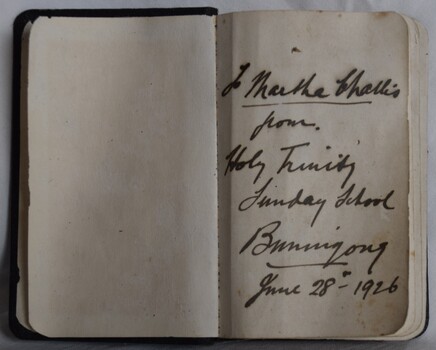 To Martha Challis
from.
Holy Trinity
Sunday School
Buninyong
June 28th - 1926